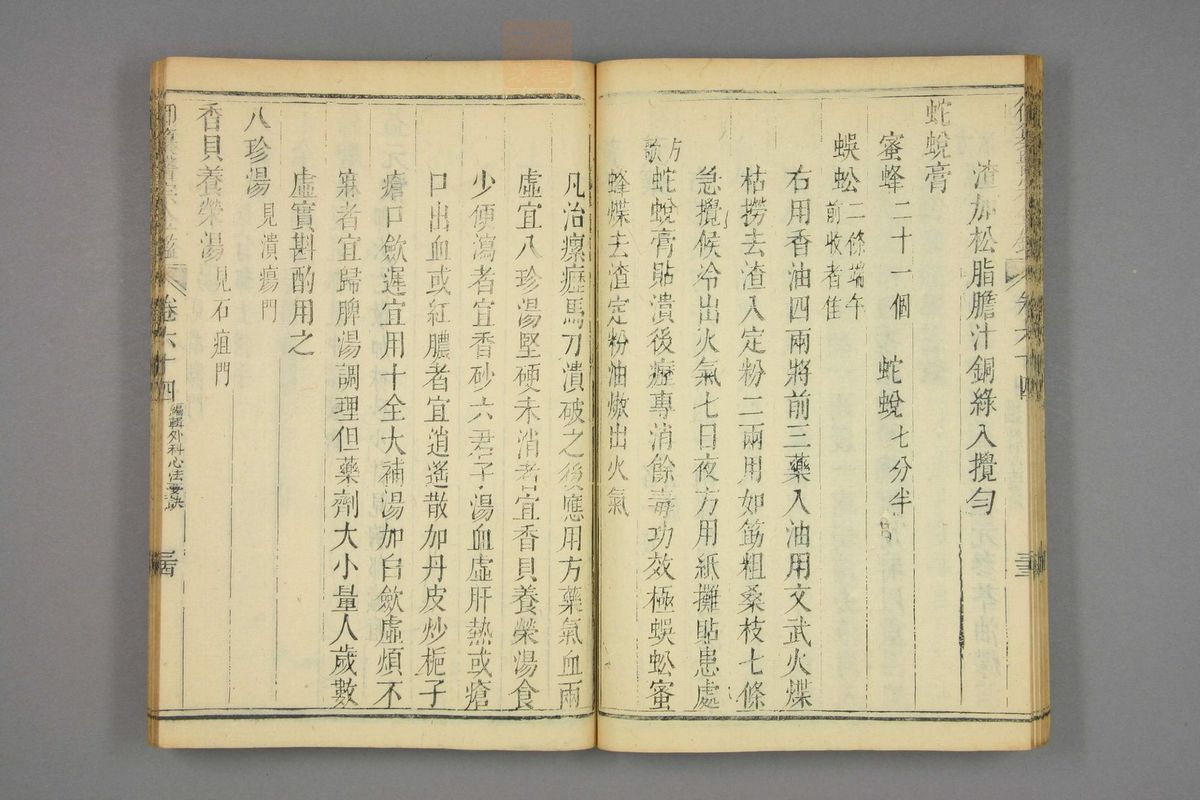 渣加松脂膽汁銅綠入攪勻
蛇蛻膏
蜜蜂二十一個　蛇蛻七分半
蜈蚣二條端午前收者佳
右用香油四兩將前三藥入油用文武火煠
枯撈去渣入定粉二兩用如筯粗桑枝七條
急攪候冷出火氣七日夜方用紙攤貼患處
方歌　蛇蛻膏貼潰後癧專消餘毒功效極蜈蚣蜜
蜂煠去渣定粉油熬出火氣
凡治瘰癧馬刀潰破之後應用方藥氣血兩
虛宜八珍湯堅硬未消者宜香貝養榮湯食
少便瀉者宜香砂六君子湯血虛肝熱或瘡
口出血或紅膿者宜逍遙散加丹皮炒梔子
瘡口斂遲宜用十全大補湯加白斂虛煩不
寐者宜歸脾湯調理但藥劑大小量人歲數
虛實斟酌用之
八珍湯見潰瘍門
香貝養榮湯見石疽門
卷六十四　編輯外科心法要訣